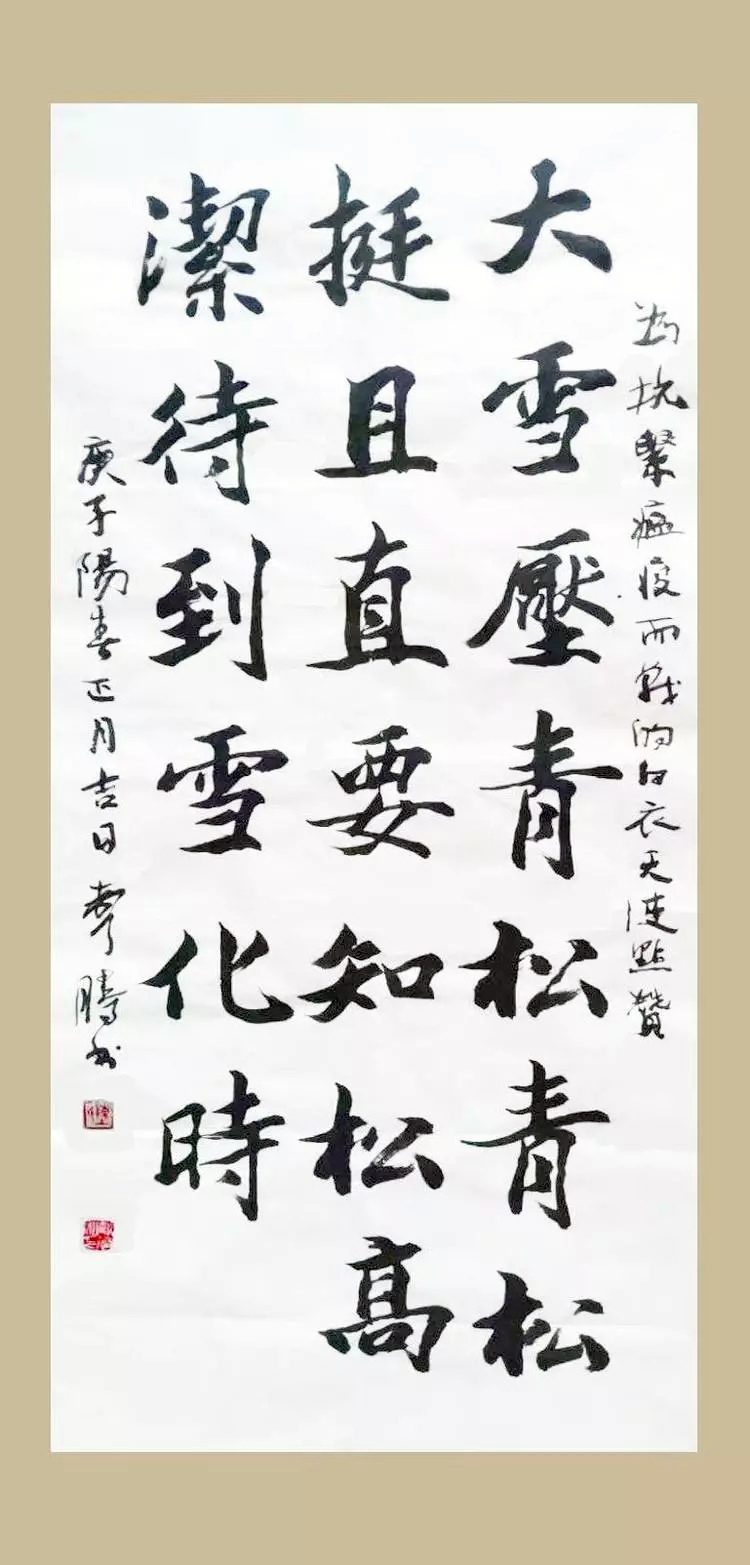 为抗擊瘟疫而战的白衣天使點贊
大雪壓青松青松
挺且直要知松高
潔待到雪化時
庚子陽春正月吉日騰书